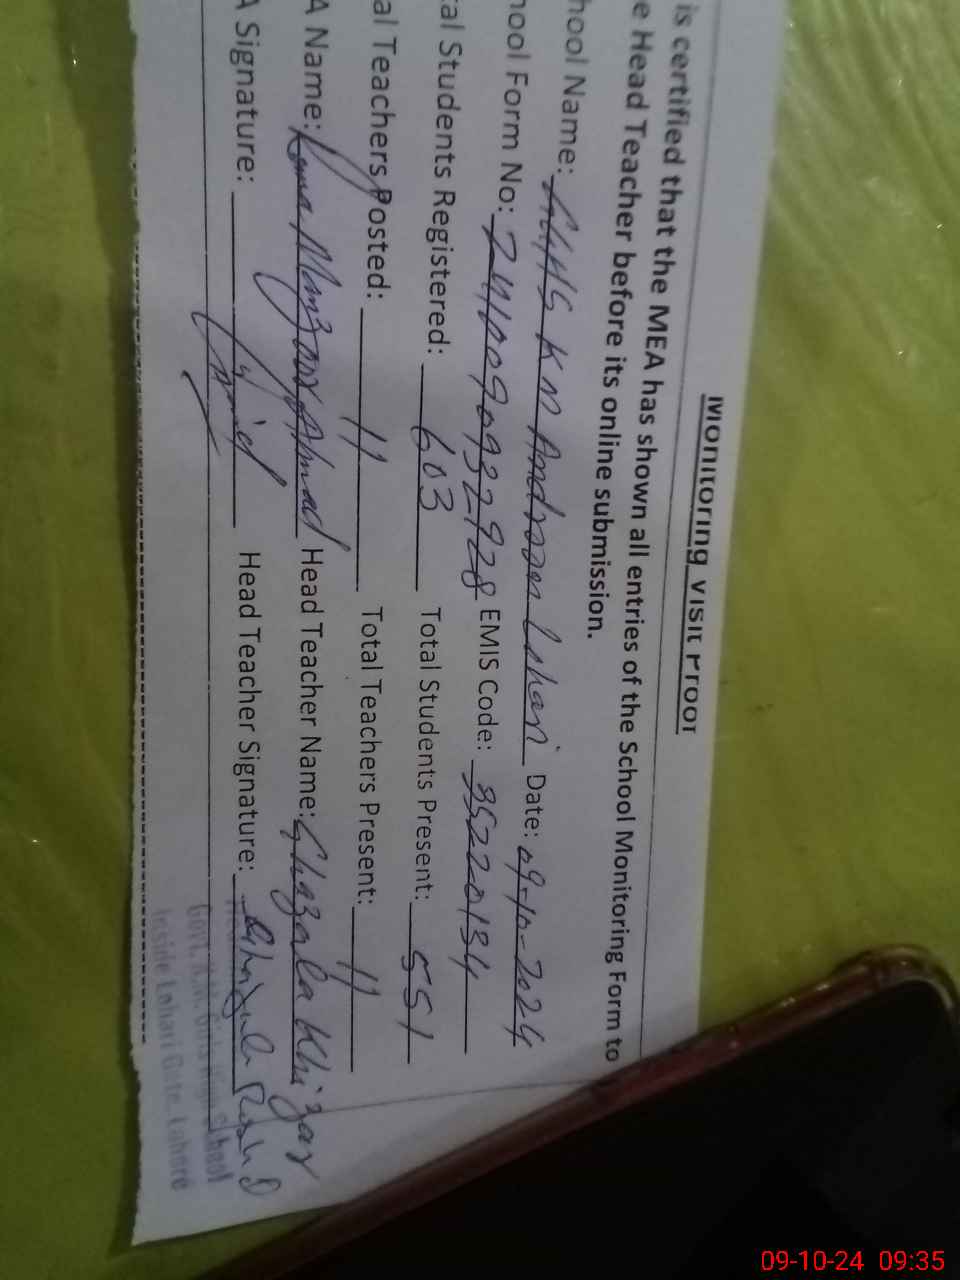 Monitoring Visit Proof
is certified that the MEA has shown all entries of the School Monitoring Form to
e Head Teacher before its online submission.
hool Name: GGHS K M Androon Lohari Date: 09-10-2024
hool Form No: 2410090932928 EMIS Code: 35220134
tal Students Registered: 603 Total Students Present: 551
al Teachers Posted: 11 Total Teachers Present: 11
A Name: Rana Manzoor Ahmad Head Teacher Name: Ghazala Khizar
A Signature: Head Teacher Signature: Ghazala
Govt. K.M. Girls High School
Inside Lohari Gate, Lahore
09-10-24 09:35